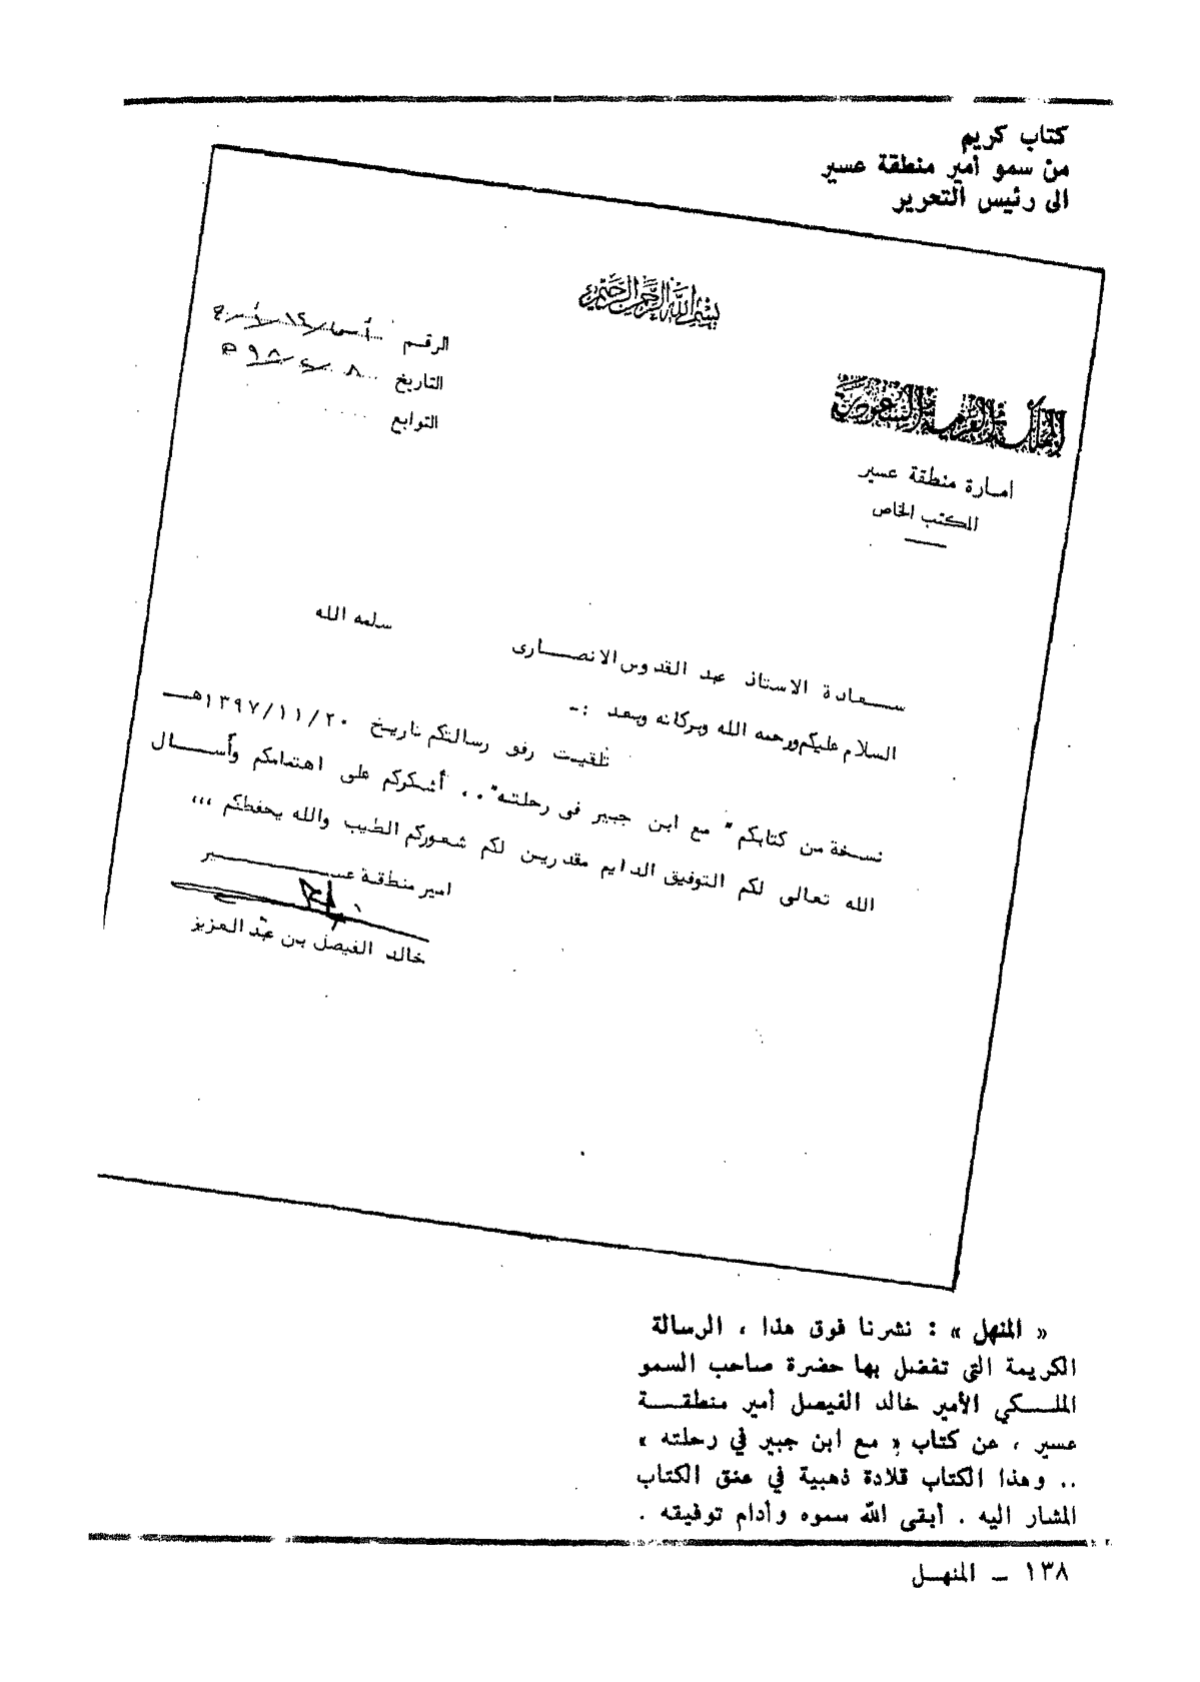 كتاب كريم
من سمو أمير منطقة عسير
الى رئيس التحرير
بسم الله الرحمن الرحيم
المملكة العربية السعودية
امارة منطقة عسير
المكتب الخاص
الرقم
التاريخ ٨ / ٤ / ٩٨ هـ
التوابع
سـعادة الاستاذ عبد القدوس الانصـارى سلمه الله
السلام عليكم ورحمه الله وبركاته وبعد :-
تلقيت رفق رسالتكم تاريخ ١٣٩٧/١١/٢٠هـ
نسخة من كتابكم " مع ابن جبير فى رحلته".. أشكركم على اهتمامكم وأسـال
الله تعالى لكم التوفيق الدايم مقدرين لكم شعوركم الطيب والله يحفظكم ،،،
امير منطقة عسـير
خالد الفيصل بن عبد العزيز
« المنهل » : نشرنا فوق هذا ، الرسالة
الكريمة التي تفضل بها حضرة صاحب السمو
الملـكي الأمير خالد الفيصل أمير منطقـة
عسير ، عن كتاب « مع ابن جبير في رحلته »
.. وهذا الكتاب قلادة ذهبية في عنق الكتاب
المشار اليه . أبقى الله سموه وأدام توفيقه .
١٣٨ ــ المنهـل